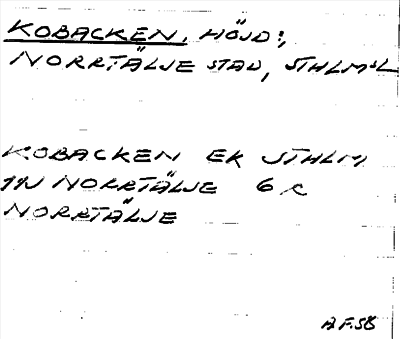 KOBACKEN, HÖJD:,
NORRTÄLJE STAD, STHLMSL
KOBACKEN EK STHLM
11N NORRTÄLJE 6 c
NORRTÄLJE
A F.58